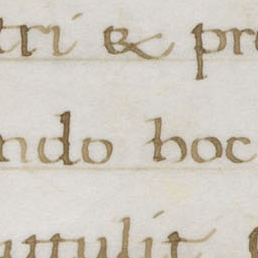 tri & pr
ndo hoc
rtulit